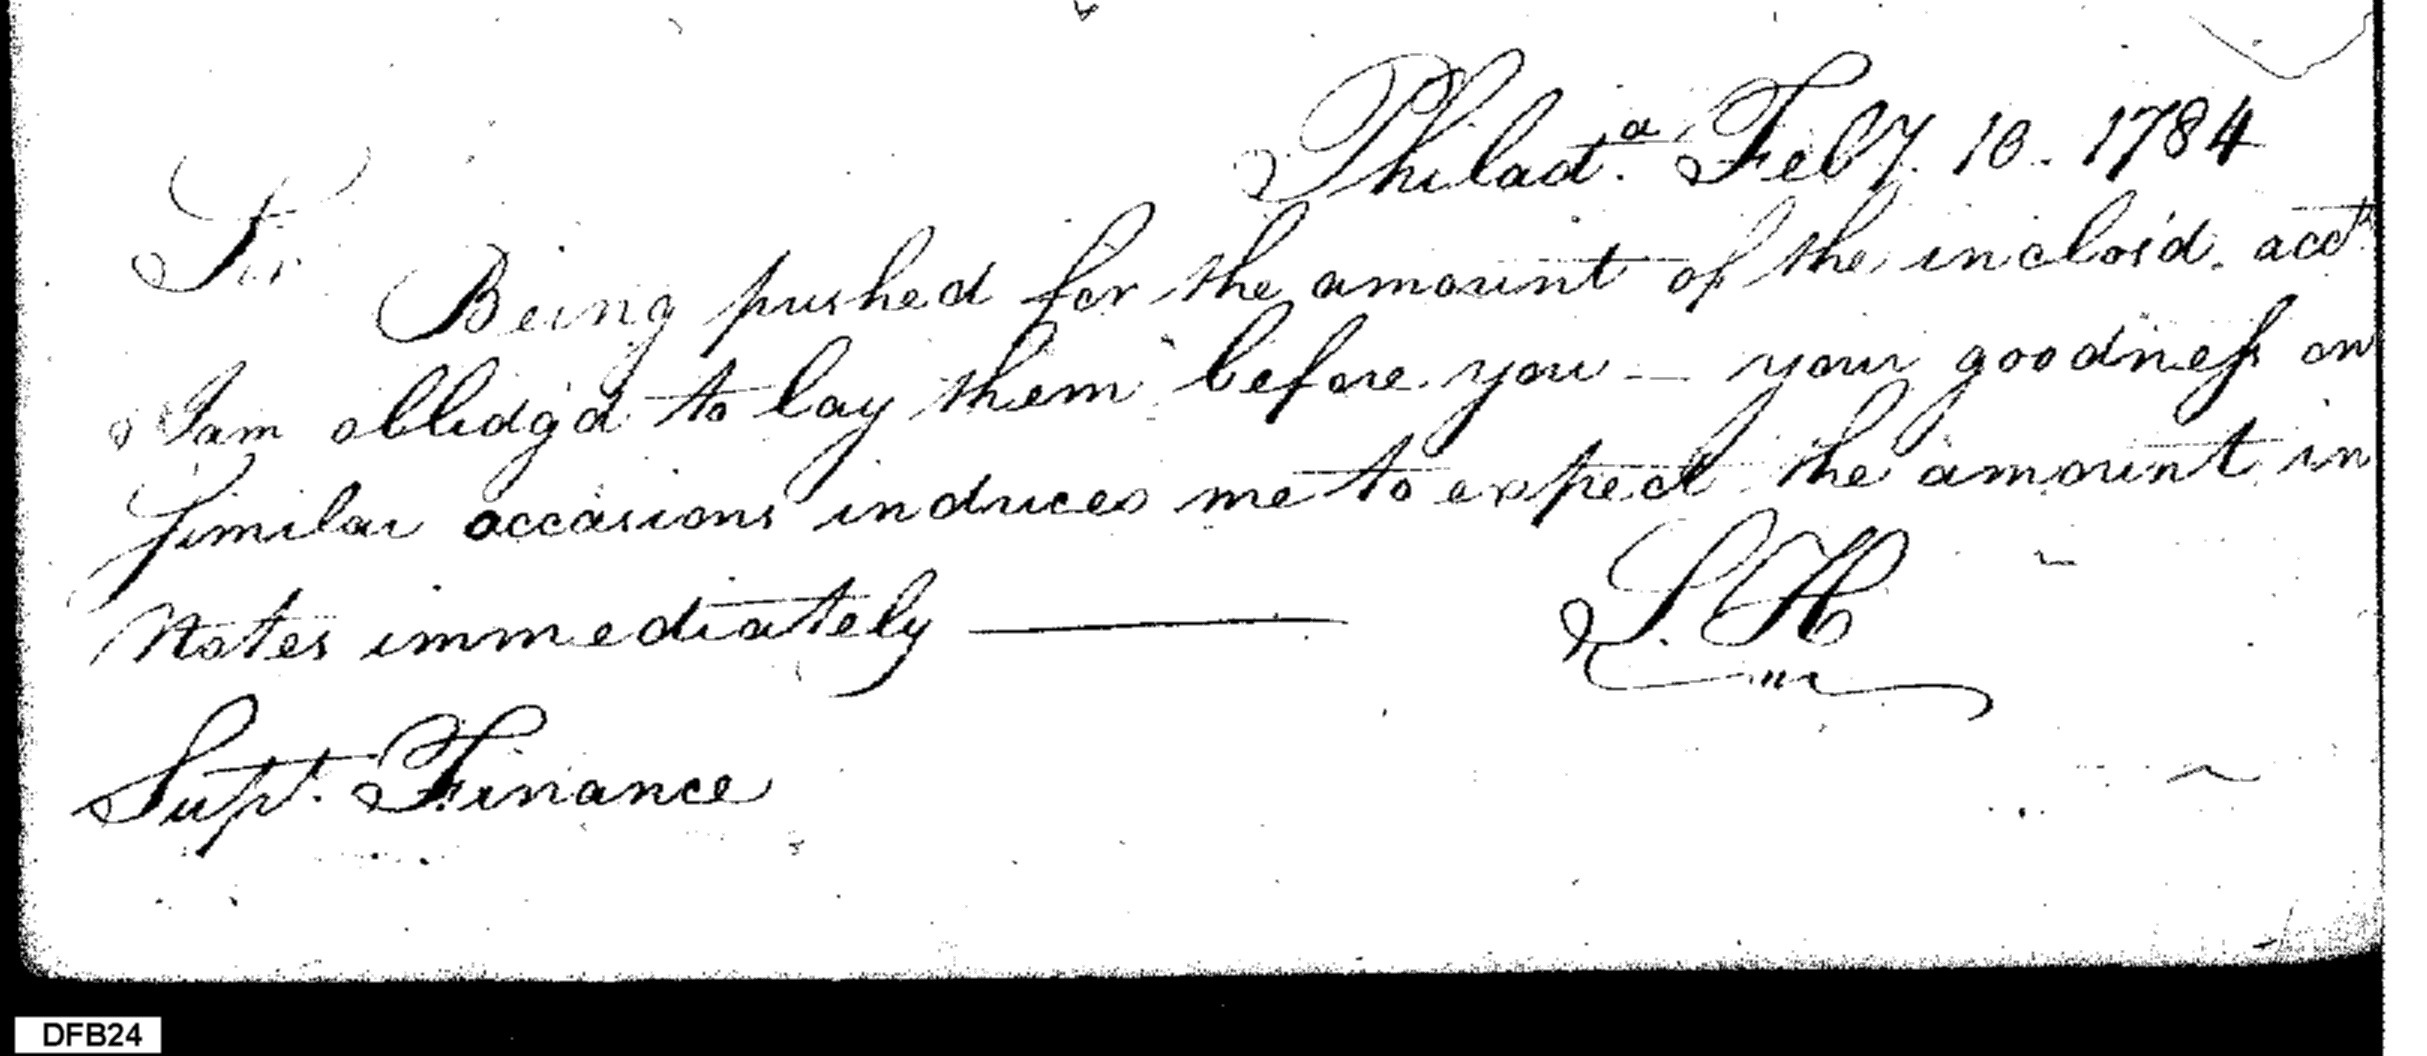 Philada. Feby. 10. 1784
Sir
Being pushed for the amount of the inclos'd. accts
I am oblidg'd to lay them before you — your goodness on
similar occasions induces me to expect the amount in
Notes immediately —
S. H
Supt. Finance
DFB24